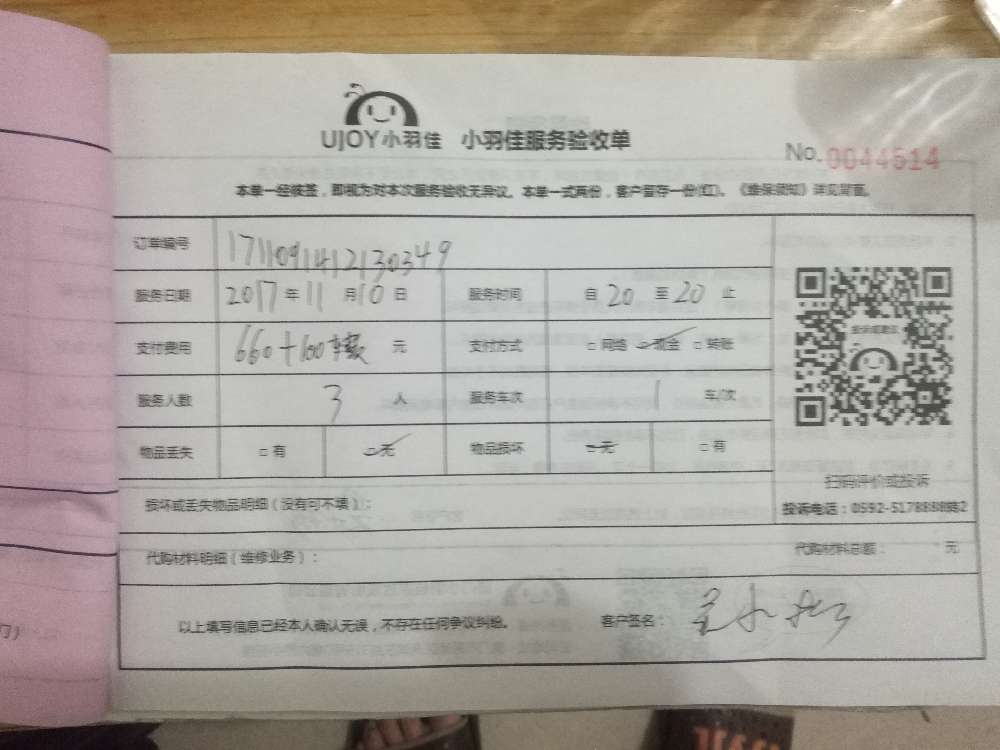 UJOY小羽佳 小羽佳服务验收单
No.0044614
本单一经核签，即视为对本次服务验收无异议。本单一式两份，客户留存一份(红)。《维保须知》详见背面。
订单编号 1711091412130349
服务日期 2017年11月10日 服务时间 自20至20止
支付费用 660+100 元 支付方式 □网络 □现金 □转账
服务人数 3人 服务车次 1车/次
物品丢失 □有 □无 物品损坏 □无 □有
扫码评价或投诉
损坏或丢失物品明细（没有可不填）：
投诉电话：0592-5178888转2
代购材料明细（维修业务）： 代购材料总额： 元
以上填写信息已经本人确认无误，不存在任何争议纠纷。 客户签名：